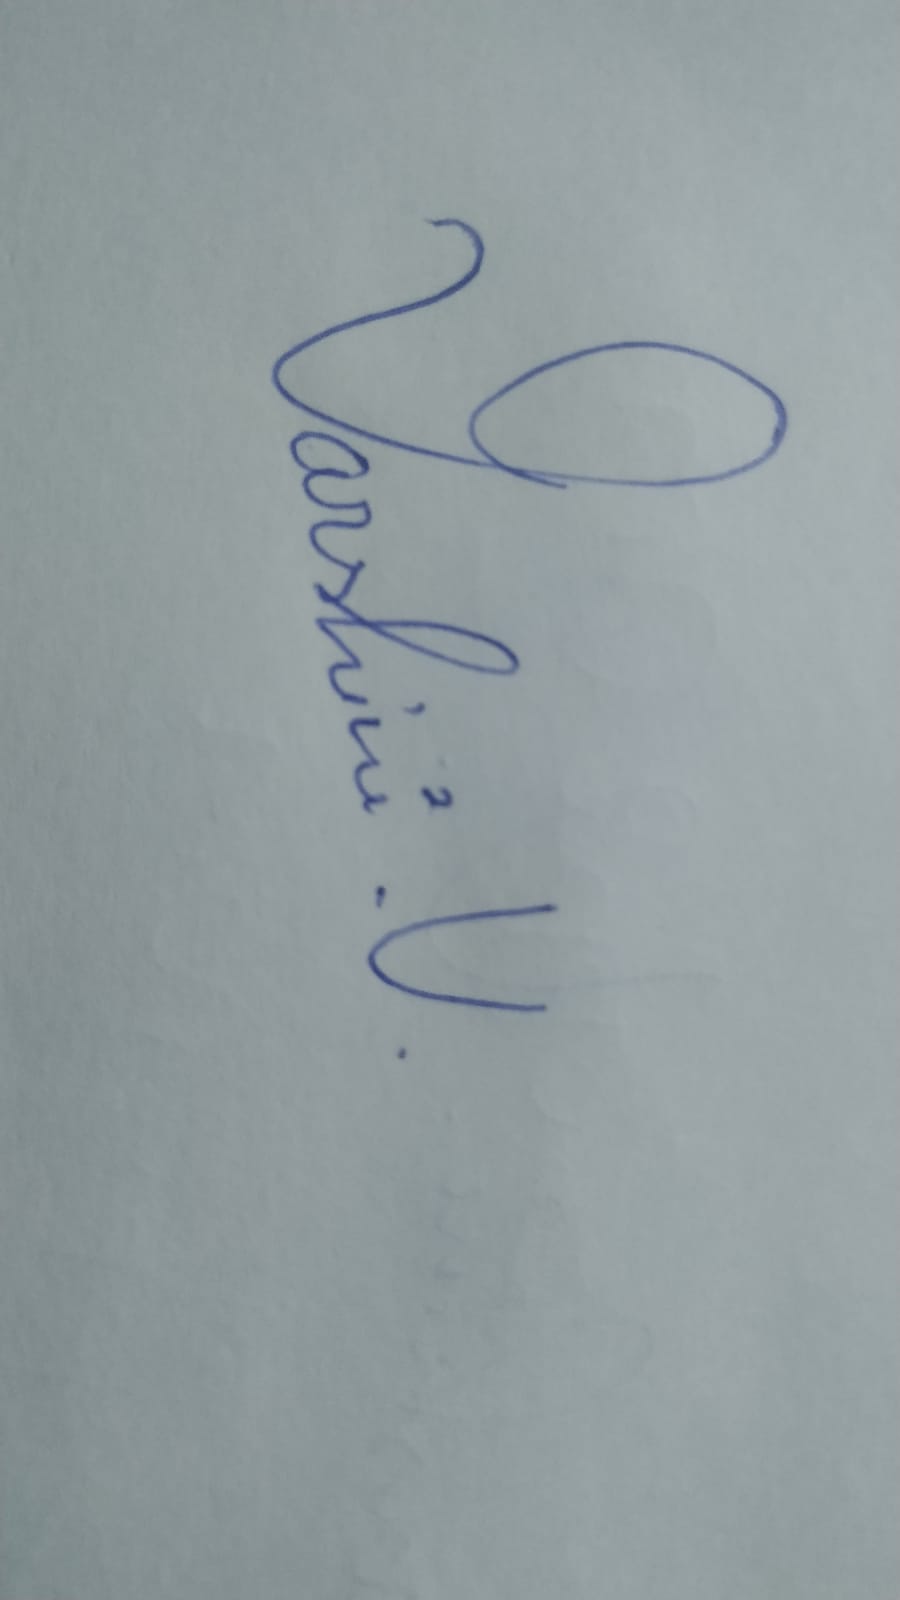 Varshini . V .